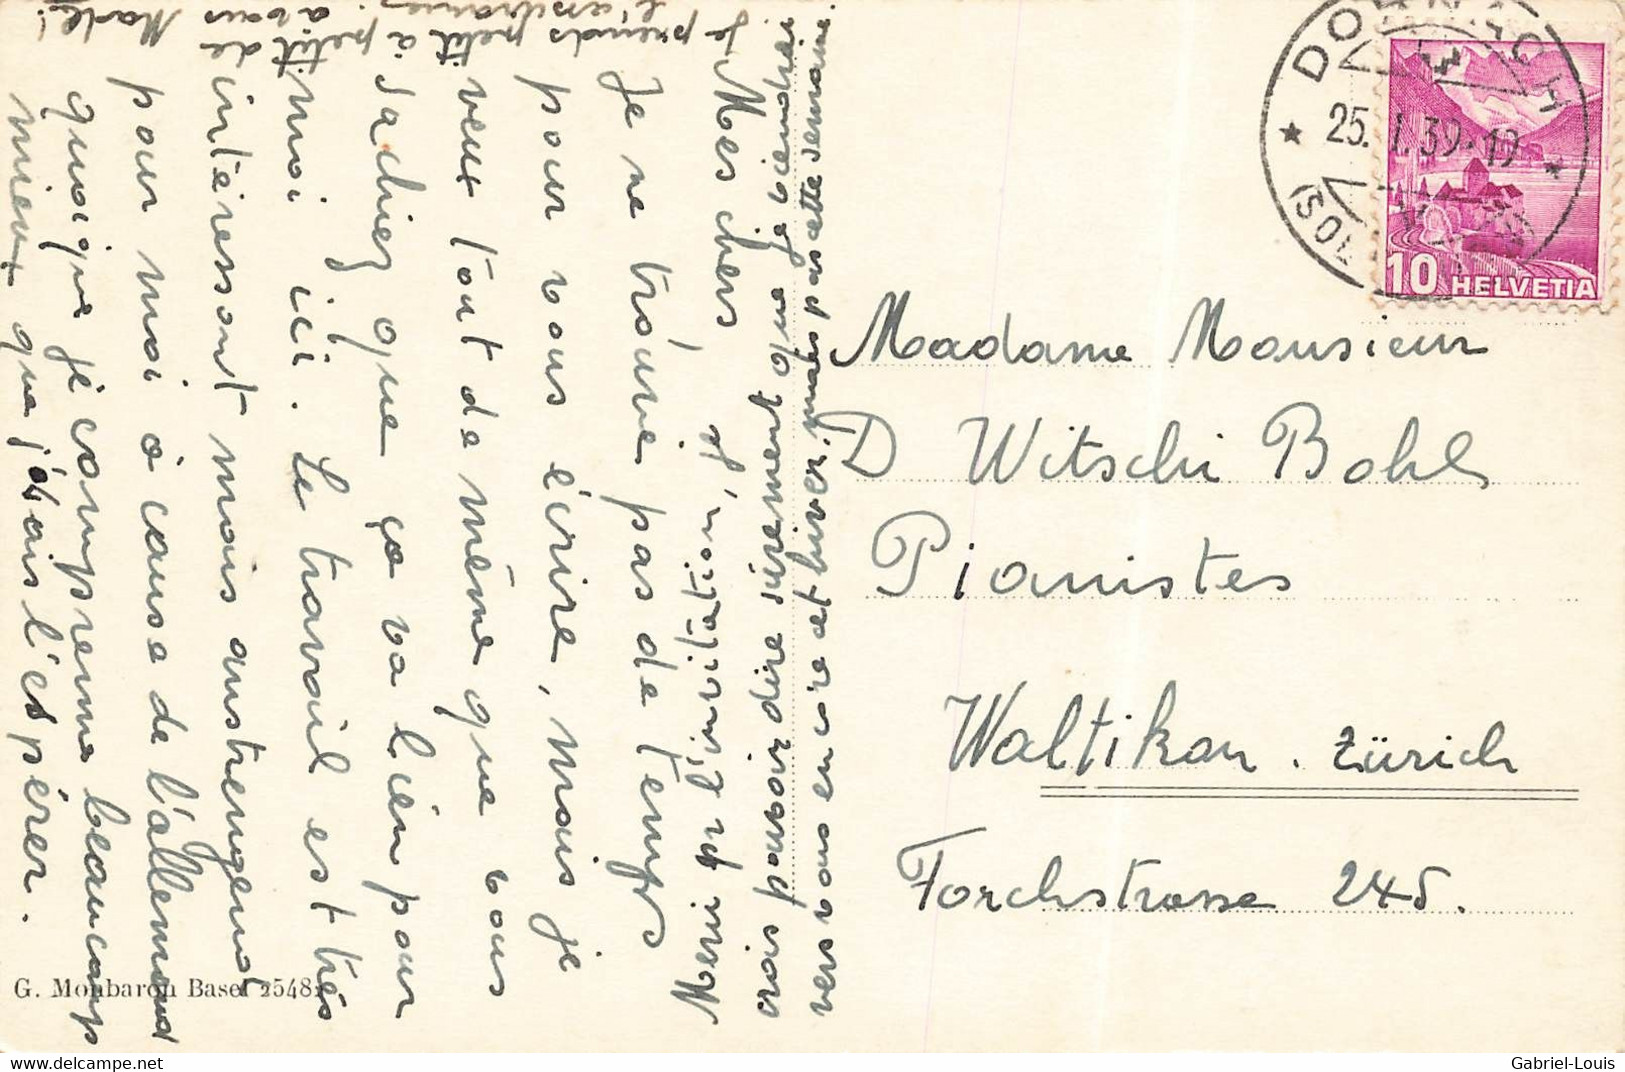 Mes chers
Je ne trouve pas de temps
pour vous écrire, mais je
veux tout de même que vous
sachiez que ça va bien pour
moi ici. Le travail est très
intéressant mais anstrengend
pour moi à cause de l'allemand
quoique je comprenne beaucoup
mieux que j'avais l'espérer.
Merci pr l'invitation,
vais pouvoir dire sûrement que je viendrai
vers vous encore cet hiver, mais pas cette semaine.
Je prends petit à petit de
l'assurance, à vous
DORNACH
25. I. 39. 19
(SOL
10 HELVETIA
Madame Monsieur
D Witschi Bohl
Pianistes
Waltikon. Zürich
Forchstrasse 245.
G. Monbaron Basel 2548
delcampe.net
Gabriel-Louis